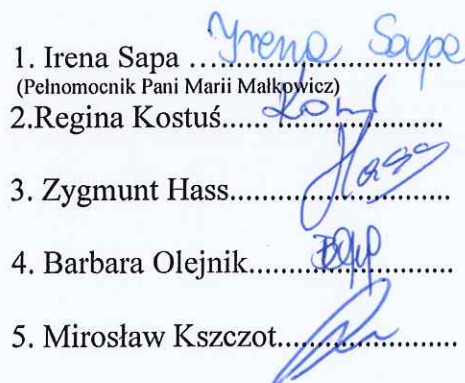 1. Irena Sapa ................ Irena Sapa
(Pełnomocnik Pani Marii Małkowicz)
2.Regina Kostuś.........................
3. Zygmunt Hass......................... Hass
4. Barbara Olejnik.......................
5. Mirosław Kszczot.....................